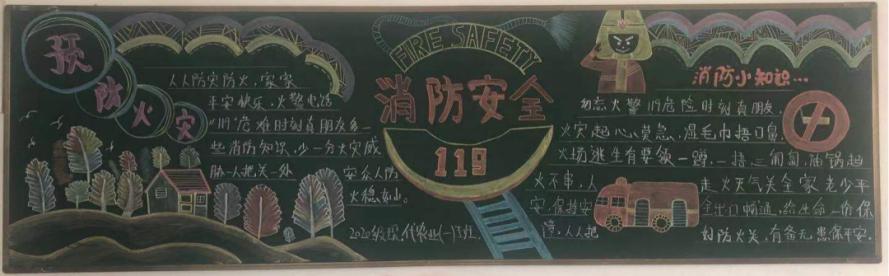 预防火灾
FIRE SAFETY
消防安全
119
人人防灾防火,家家
平安快乐,火警电话
119危难时刻真朋友多一
些消防知识,少一分火灾威
胁人把关一处
安众人防
火稳如山。
2020级现代农业(一)5班
消防小知识…
火警119危险时刻真朋友,
火灾起心莫急,湿毛巾捂口鼻
火场逃生有要领一蹲,一捂三匍匐,油锅起
火不事,人
走火天气关全家老少平
安,保持安
全出口畅通,给生命一份保
障,人人把
好防火关,有备无患保平安.